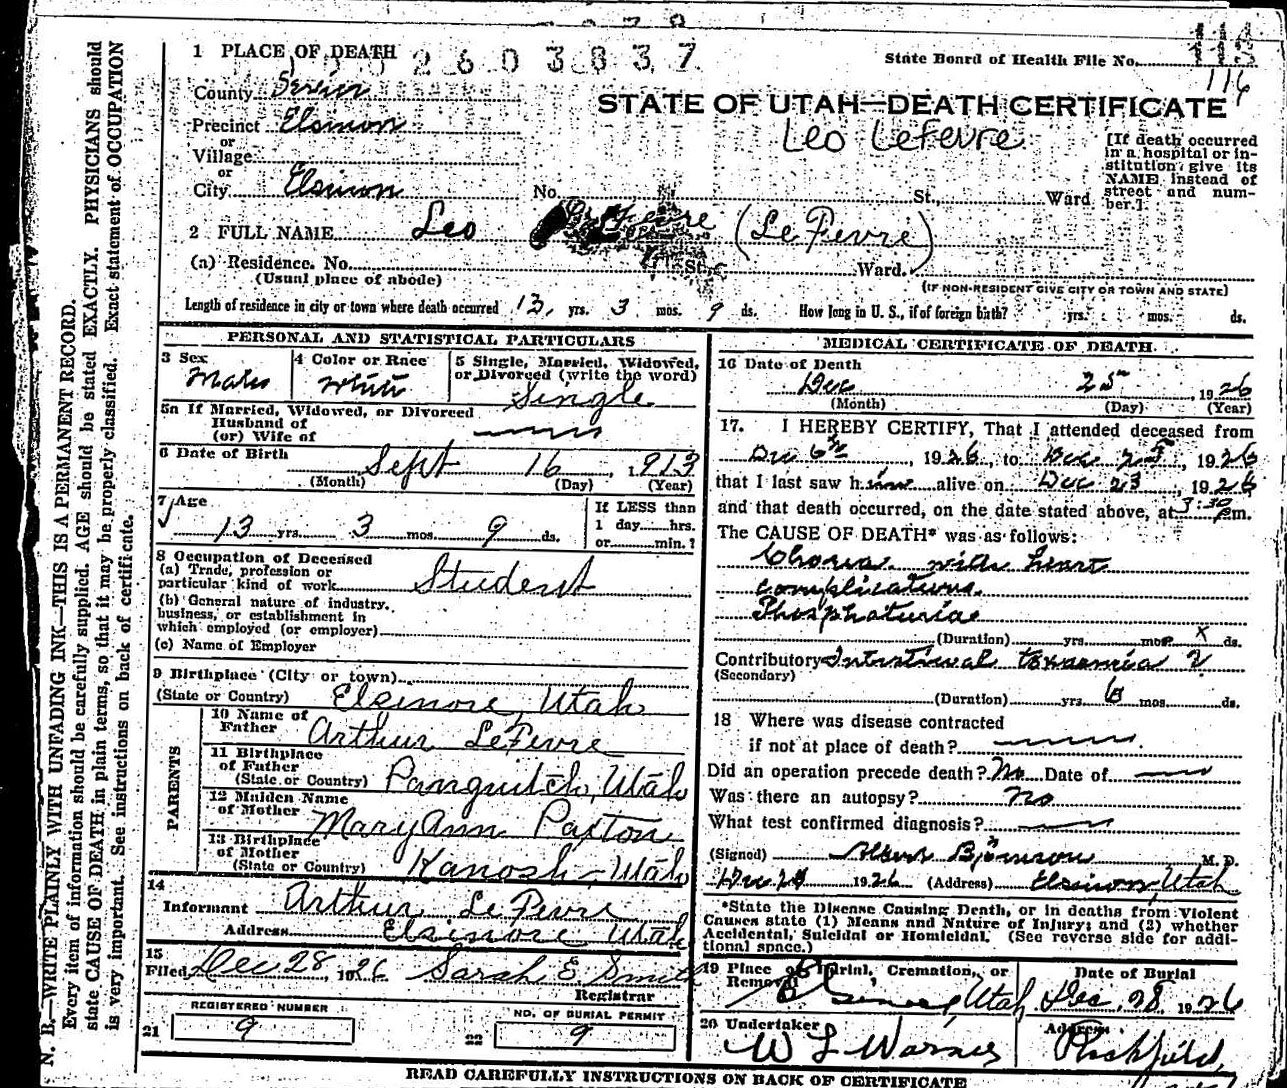 1 PLACE OF DEATH
2 6 0 3 8 3 7
State Board of Health File No.
116
County Sevier
STATE OF UTAH—DEATH CERTIFICATE
Precinct Elsinore
Leo LeFevre
or
Village
or
City Elsinore No. St., Ward
[If death occurred
in a hospital or in-
stitution give its
NAME instead of
street and num-
ber.]
2 FULL NAME Leo (LeFevre)
(a) Residence. No. St. Ward.
(Usual place of abode)
(IF NON-RESIDENT GIVE CITY OR TOWN AND STATE)
Length of residence in city or town where death occurred 13 yrs. 3 mos. 9 ds. How long in U. S., if of foreign birth? yrs. mos. ds.
PERSONAL AND STATISTICAL PARTICULARS
3 Sex
Male
4 Color or Race
White
5 Single, Married, Widowed,
or Divorced (write the word)
Single
5a If Married, Widowed, or Divorced
Husband of
(or) Wife of
6 Date of Birth
Sept 16, 1913
(Month) (Day) (Year)
7 Age
13 yrs. 3 mos. 9 ds.
If LESS than
1 day hrs.
or min.?
8 Occupation of Deceased
(a) Trade, profession or
particular kind of work Student
(b) General nature of industry,
business, or establishment in
which employed (or employer)
(c) Name of Employer
9 Birthplace (City or town)
(State or Country) Elsinore, Utah
PARENTS
10 Name of
Father Arthur LeFevre
11 Birthplace
of Father
(State or Country) Panguitch, Utah
12 Maiden Name
of Mother Mary Ann Paxton
13 Birthplace
of Mother
(State or Country) Kanosh, Utah
14
Informant Arthur LeFevre
Address Elsinore Utah
15
Filed Dec 28 1926 Sarah E Smith
Registrar
REGISTERED NUMBER
21 9
NO. OF BURIAL PERMIT
22 9
MEDICAL CERTIFICATE OF DEATH
16 Date of Death
Dec 25, 1926
(Month) (Day) (Year)
17. I HEREBY CERTIFY, That I attended deceased from
Dec 6th, 1926, to Dec 25, 1926
that I last saw him alive on Dec 23, 1926
and that death occurred, on the date stated above, at 3:30 p.m.
The CAUSE OF DEATH* was as follows:
Chorea with heart
complications.
Phosphaturiae
(Duration) yrs. mos. x ds.
Contributory Intestinal toxaemia ?
(Secondary)
(Duration) yrs. 6 mos. ds.
18 Where was disease contracted
if not at place of death?
Did an operation precede death? No Date of
Was there an autopsy? no
What test confirmed diagnosis?
(Signed) M. D.
1926 (Address) Elsinore, Utah
*State the Disease Causing Death, or in deaths from Violent
Causes state (1) Means and Nature of Injury; and (2) whether
Accidental, Suicidal or Homicidal. (See reverse side for addi-
tional space.)
19 Place of Burial, Cremation, or
Removal
Elsinore, Utah
Date of Burial
Dec. 28 1926
20 Undertaker
W L Warner
Address
Richfield,
READ CAREFULLY INSTRUCTIONS ON BACK OF CERTIFICATE
N. B.—WRITE PLAINLY WITH UNFADING INK—THIS IS A PERMANENT RECORD.
Every item of information should be carefully supplied. AGE should be stated EXACTLY. PHYSICIANS should
state CAUSE OF DEATH in plain terms, so that it may be properly classified. Exact statement of OCCUPATION
is very important. See instructions on back of certificate.